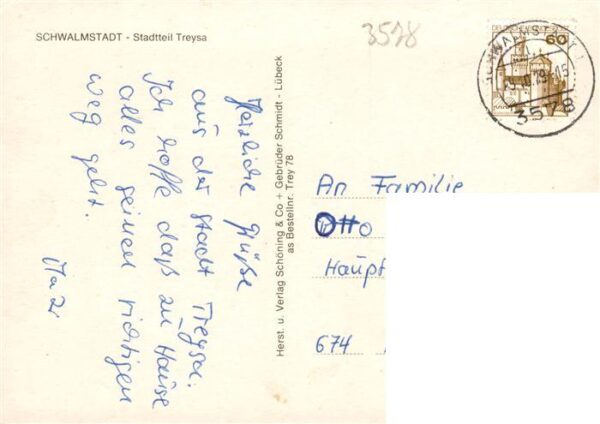 SCHWALMSTADT - Stadtteil Treysa
3578
60
3578
Herzliche Grüße
aus der Stadt Treysa.
Ich hoffe daß zu Hause
alles seinen richtigen
Weg geht.
Herst. u. Verlag Schöning & Co + Gebrüder Schmidt - Lübeck
as Bestellnr. Trey 78
An Familie
Otto
Haupt
674